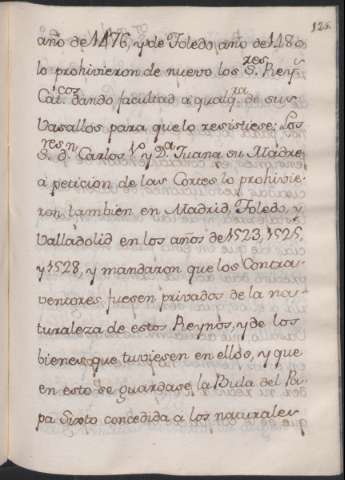 125.
año de 1476, y de Toledo año de 1480
lo prohivieron de nuevo los S.res Reys
Cat.cos dando facultad a qualq.ra de sus
Vasallos para que lo resistiese; Los
S.res D.n Carlos 1.º y D.a Juana su Madre,
a peticion de las Cortes lo prohivie-
ron tambien en Madrid, Toledo, y
Valladolid en los años de 1523, 1525,
y 1528, y mandaron que los Contra-
ventores fuesen privados de la na-
turaleza de estos Reynos, y de los
bienes, que tuviesen en elldo, y que
en esto se guardase la Bula del Pa-
pa Sixto concedida a los naturales